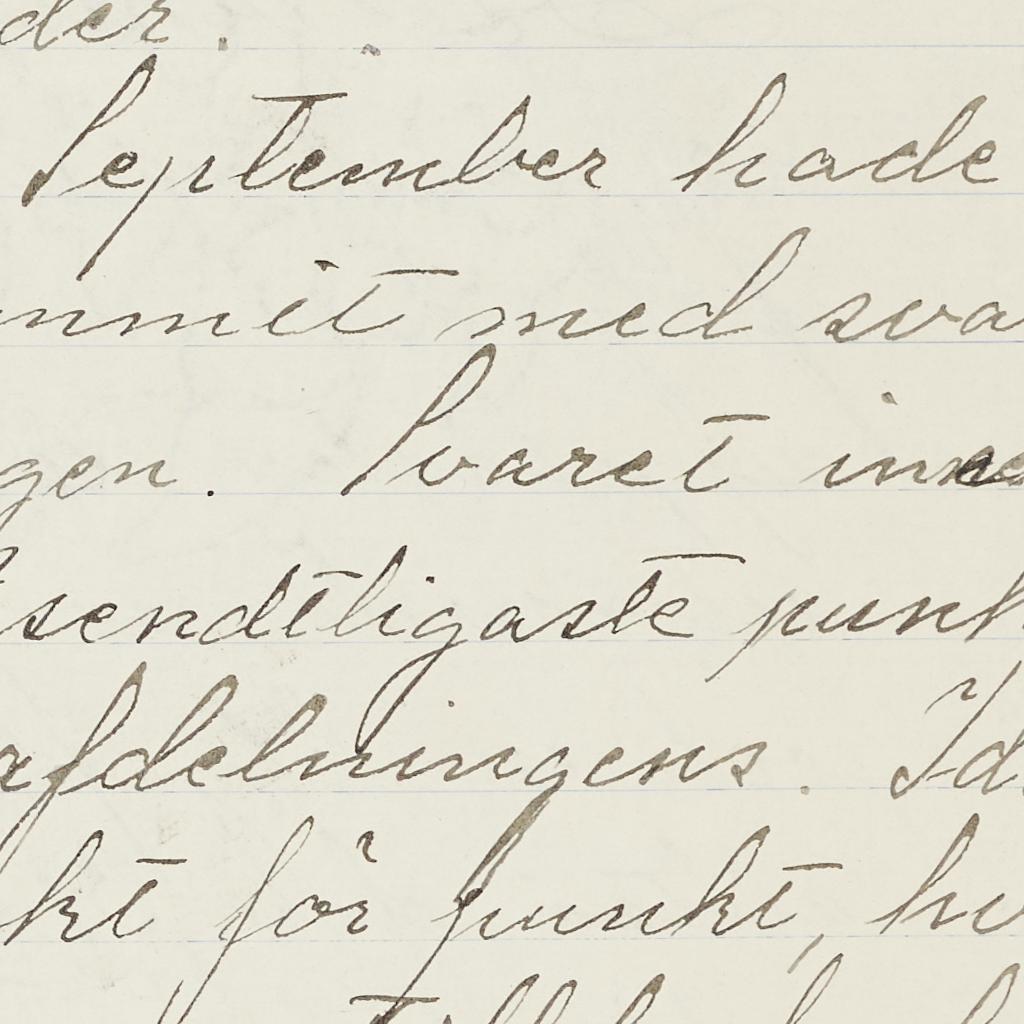 der.
September hade
nmit med sva
gen. Svaret inne
sendtligaste punk
afdelningens. Id
kt för punkt, hu